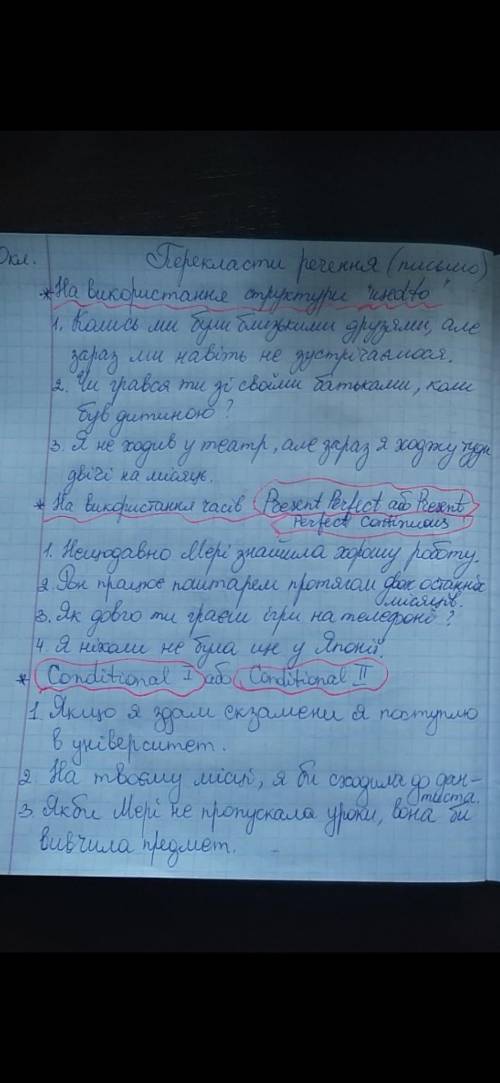 Окл. Перекласти речення (письмо)
* На використання структури "used to"
1. Колись ми були близькими друзями, але
зараз ми навіть не зустрічаємося.
2. Чи грався ти зі своїми батьками, коли
був дитиною?
3. Я не ходив у театр, але зараз я ходжу туди
двічі на місяць.
* На використання часів Present Perfect або Present
Perfect Continuous
1. Нещодавно Мері знайшла хорошу роботу.
2. Рон працює поштарем протягом двох останніх
місяців.
3. Як довго ти граєш ігри на телефоні?
4. Я ніколи не була ще у Японії.
* Conditional I або Conditional II
1. Якщо я здам екзамени я поступлю
в університет.
2. На твоєму місці, я би сходила до дан-
тиста.
3. Якби Мері не пропускала уроки, вона би
вивчила предмет.